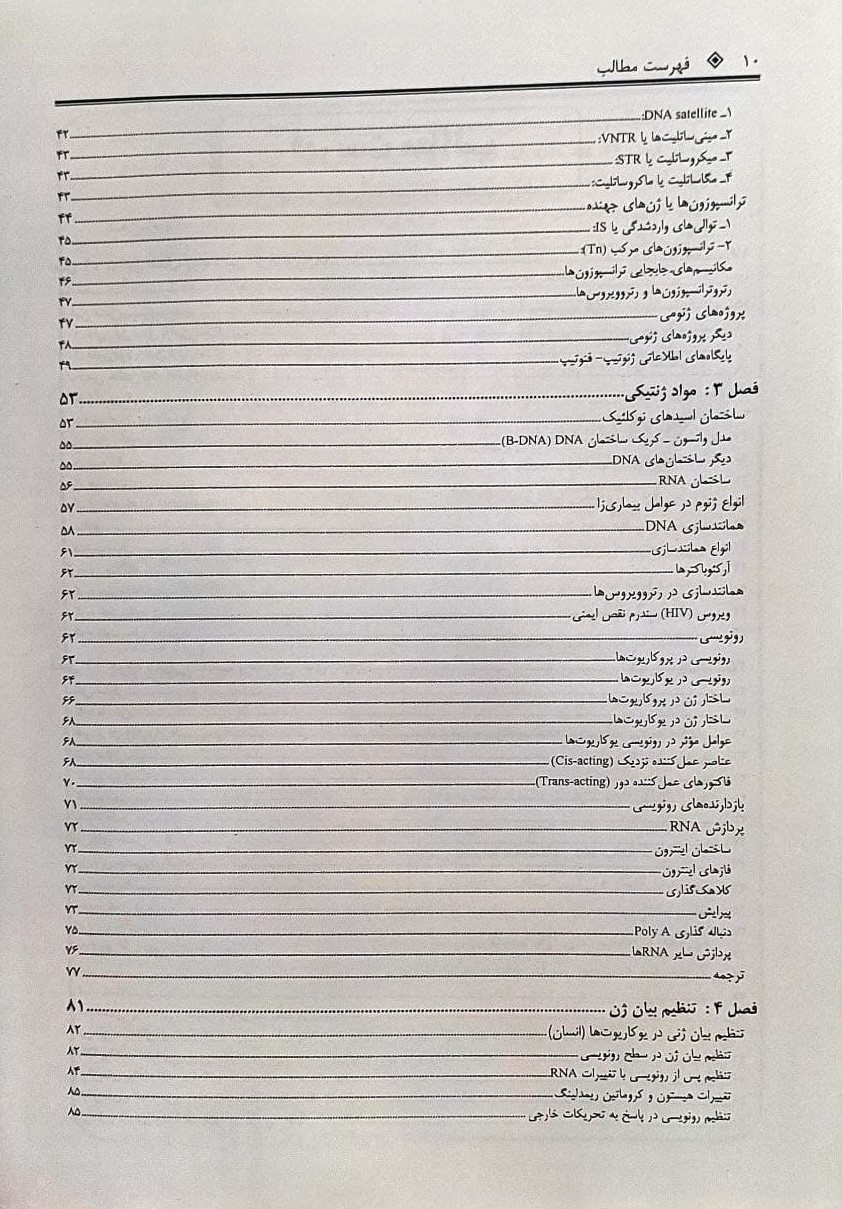 ۱۰ ◈ فهرست مطالب
۱ـ DNA satellite: ۴۲
۲ـ مینی‌ساتلیت‌ها یا VNTR: ۴۳
۳ـ میکروساتلیت یا STR: ۴۳
۴ـ مگاساتلیت یا ماکروساتلیت: ۴۳
ترانسپوزون‌ها یا ژن‌های جهنده ۴۴
۱ـ توالی‌های واردشدگی یا IS: ۴۵
۲- ترانسپوزون‌های مرکب (Tn): ۴۵
مکانیسم‌های جابجایی ترانسپوزون‌ها ۴۶
رتروترانسپوزون‌ها و رتروویروس‌ها ۴۷
پروژه‌های ژنومی ۴۷
دیگر پروژه‌های ژنومی ۴۸
پایگاه‌های اطلاعاتی ژنوتیپ- فنوتیپ ۴۹
فصل ۳: مواد ژنتیکی ۵۳
ساختمان اسیدهای نوکلئیک ۵۳
مدل واتسون ـ کریک ساختمان DNA (B-DNA) ۵۵
دیگر ساختمان‌های DNA ۵۵
ساختمان RNA ۵۶
انواع ژنوم در عوامل بیماری‌زا ۵۷
همانندسازی DNA ۵۸
انواع همانندسازی ۶۱
آرکئوباکترها ۶۲
همانندسازی در رتروویروس‌ها ۶۲
ویروس (HIV) سندرم نقص ایمنی ۶۲
رونویسی ۶۲
رونویسی در پروکاریوت‌ها ۶۳
رونویسی در یوکاریوت‌ها ۶۴
ساختار ژن در پروکاریوت‌ها ۶۶
ساختار ژن در یوکاریوت‌ها ۶۸
عوامل مؤثر در رونویسی یوکاریوت‌ها ۶۸
عناصر عمل‌کننده نزدیک (Cis-acting) ۶۸
فاکتورهای عمل‌کننده دور (Trans-acting) ۷۰
بازدارنده‌های رونویسی ۷۱
پردازش RNA ۷۲
ساختمان اینترون ۷۲
فازهای اینترون ۷۲
کلاهک‌گذاری ۷۲
پیرایش ۷۳
دنباله گذاری Poly A ۷۵
پردازش سایر RNAها ۷۶
ترجمه ۷۷
فصل ۴: تنظیم بیان ژن ۸۱
تنظیم بیان ژنی در یوکاریوت‌ها (انسان) ۸۲
تنظیم بیان ژن در سطح رونویسی ۸۲
تنظیم پس از رونویسی با تغییرات RNA ۸۴
تغییرات هیستون و کروماتین ریمدلینگ ۸۵
تنظیم رونویسی در پاسخ به تحریکات خارجی ۸۵